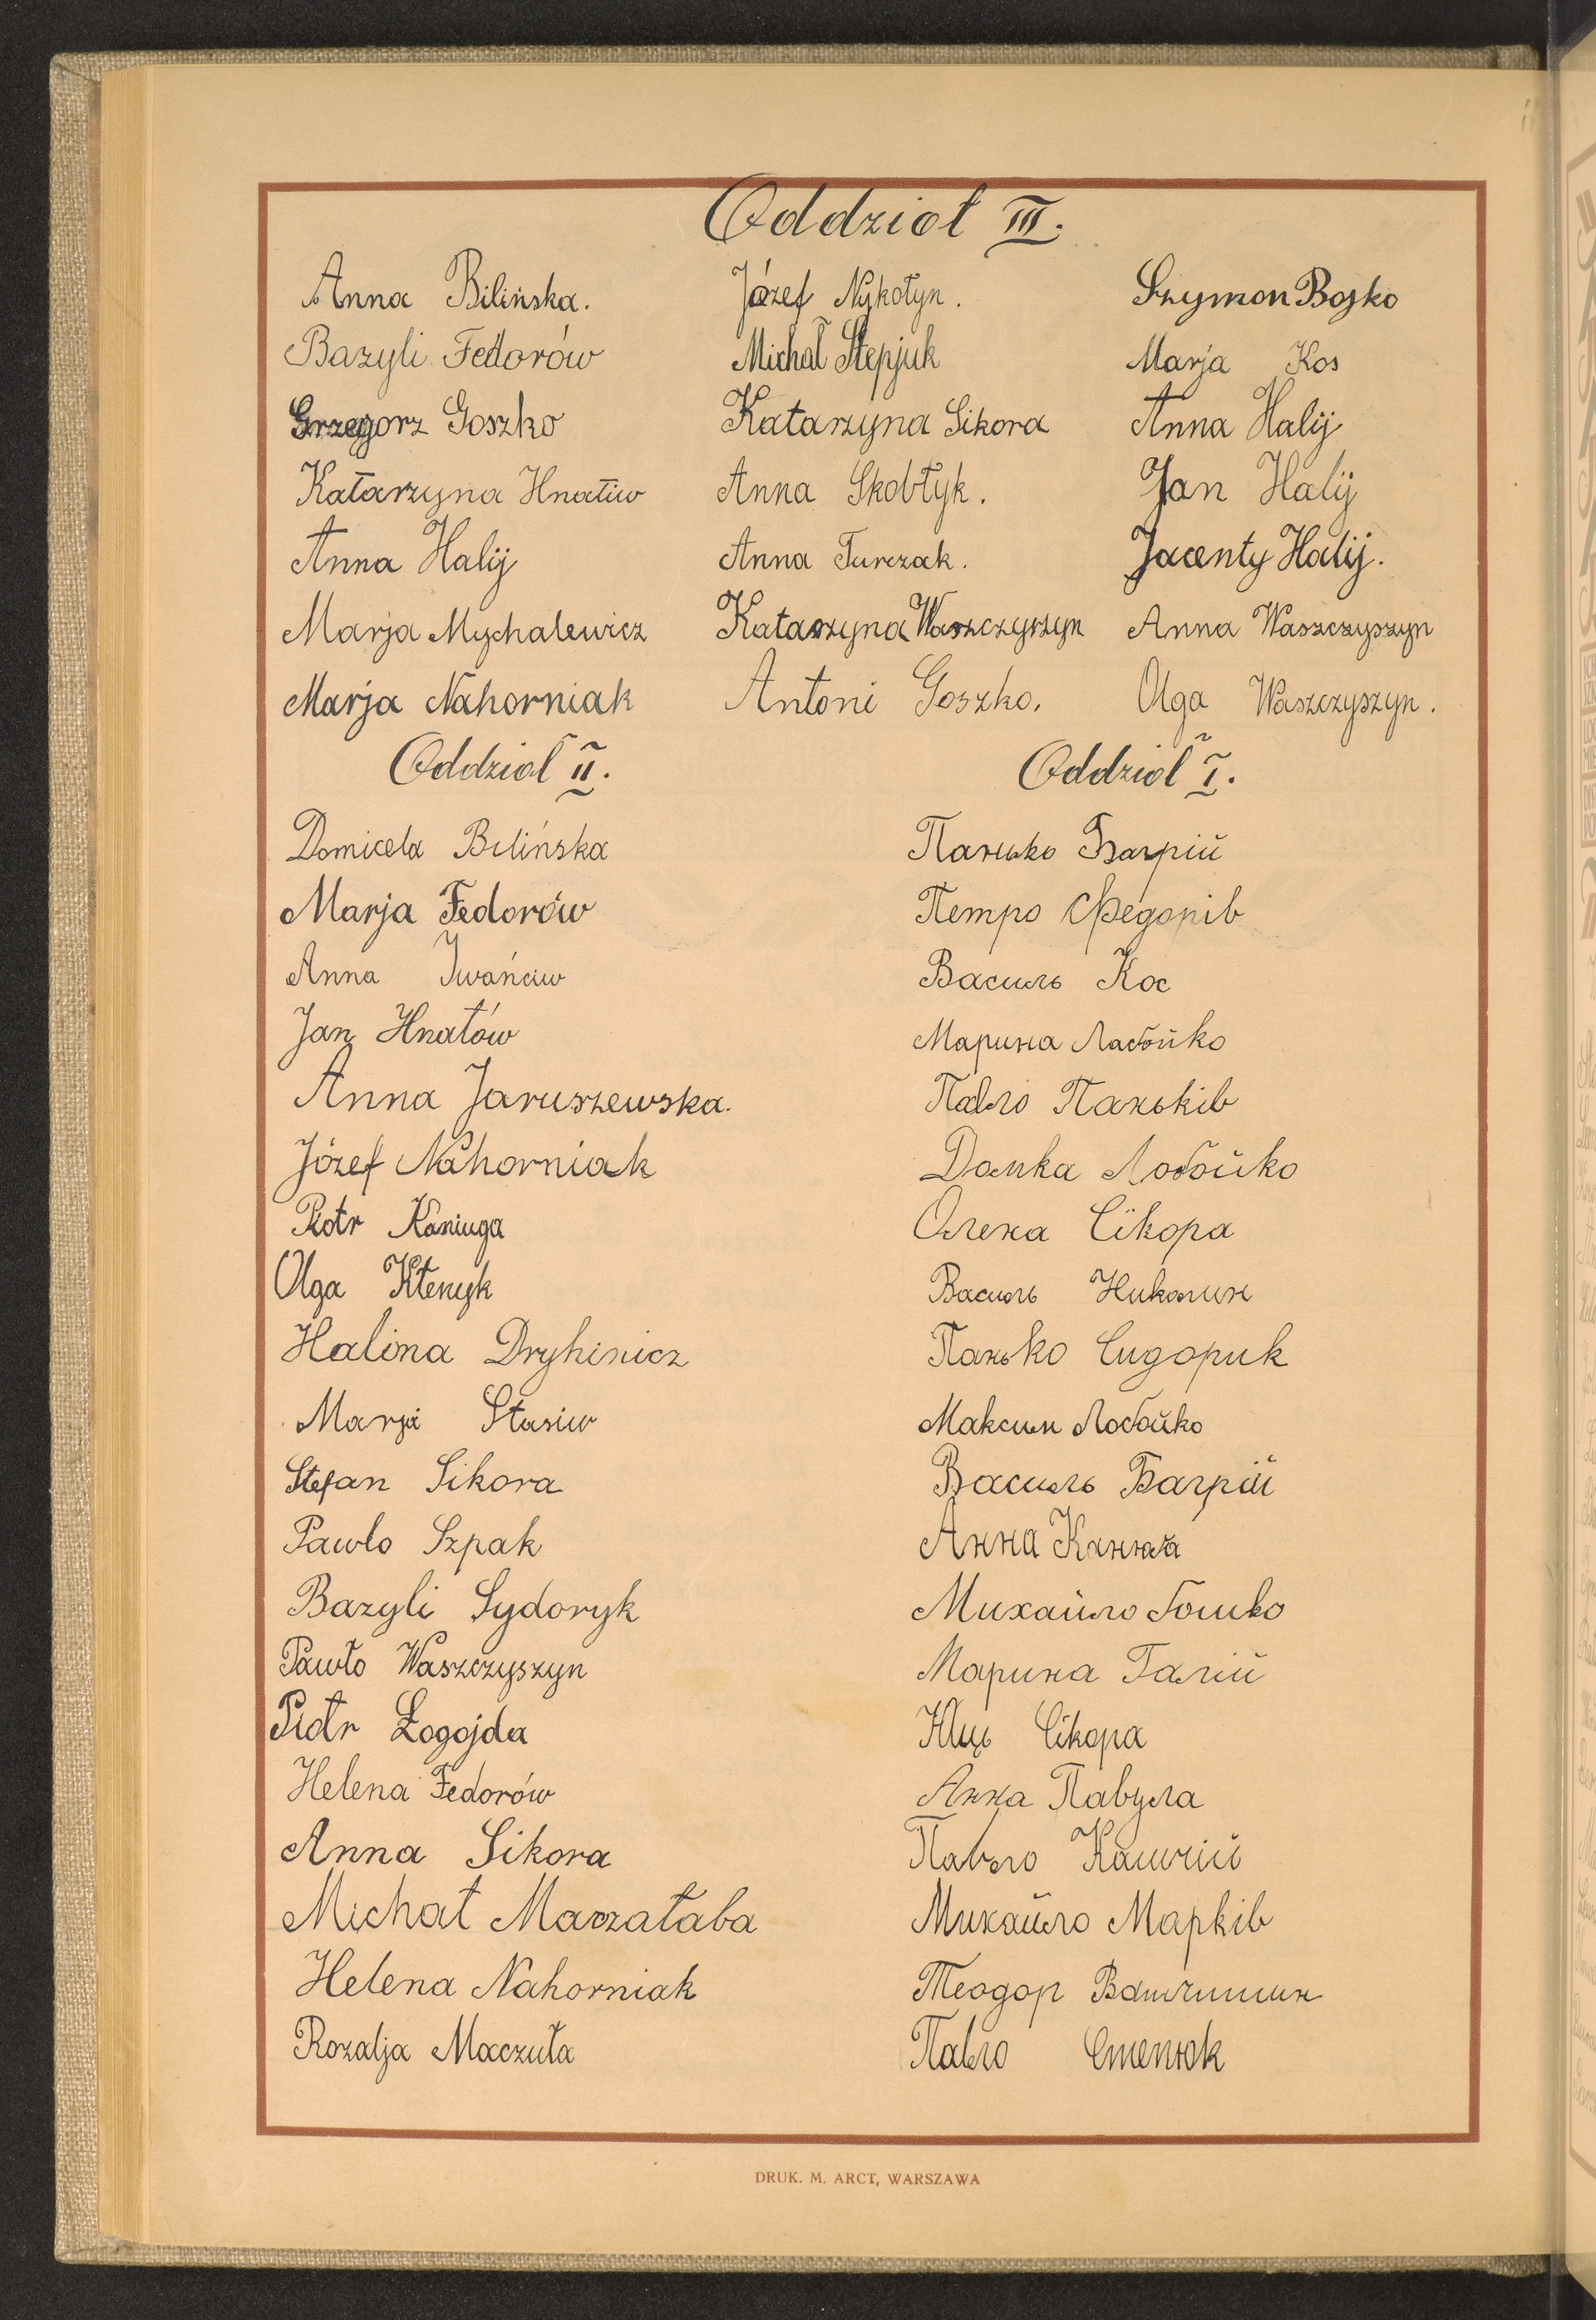 Oddział III.
Anna Bilińska.
Bazyli Fedorów
Grzegorz Goszko
Katarzyna Hnatiw
Anna Halij
Marja Mychalewicz
Marja Nahorniak
Józef Nykołyn.
Michał Stepjuk
Katarzyna Sikora
Anna Skobłyk.
Anna Turczak.
Katarzyna Waszczyszyn
Antoni Goszko.
Szymon Bojko
Marja Kos
Anna Halij
Jan Halij
Jacenty Halij.
Anna Waszczyszyn
Olga Waszczyszyn.
Oddział II.
Domicela Bilińska
Marja Fedorów
Anna Iwańciw
Jan Hnatów
Anna Jaruszewska.
Józef Nahorniak
Piotr Kaniuga
Olga Kłenyk
Halina Dryhinicz
Marja Stasiw
Stefan Sikora
Pawlo Szpak
Bazyli Sydoryk
Pawło Waszczyszyn
Piotr Łogojda
Helena Fedorów
Anna Sikora
Michał Maczałaba
Helena Nahorniak
Rozalja Maczuła
Oddział I.
Панько Багрій
Петро Федорів
Василь Кос
Марина Лабойко
Павло Паньків
Домка Лобойко
Олена Сікора
Василь Николин
Панько Сидорик
Максим Лобойко
Василь Багрій
Анна
Михайло Гошко
Марина Галій
Юць Сікора
Анна Павула
Павло
Михайло Марків
Теодор Ващишин
Павло Степюк
DRUK. M. ARCT, WARSZAWA